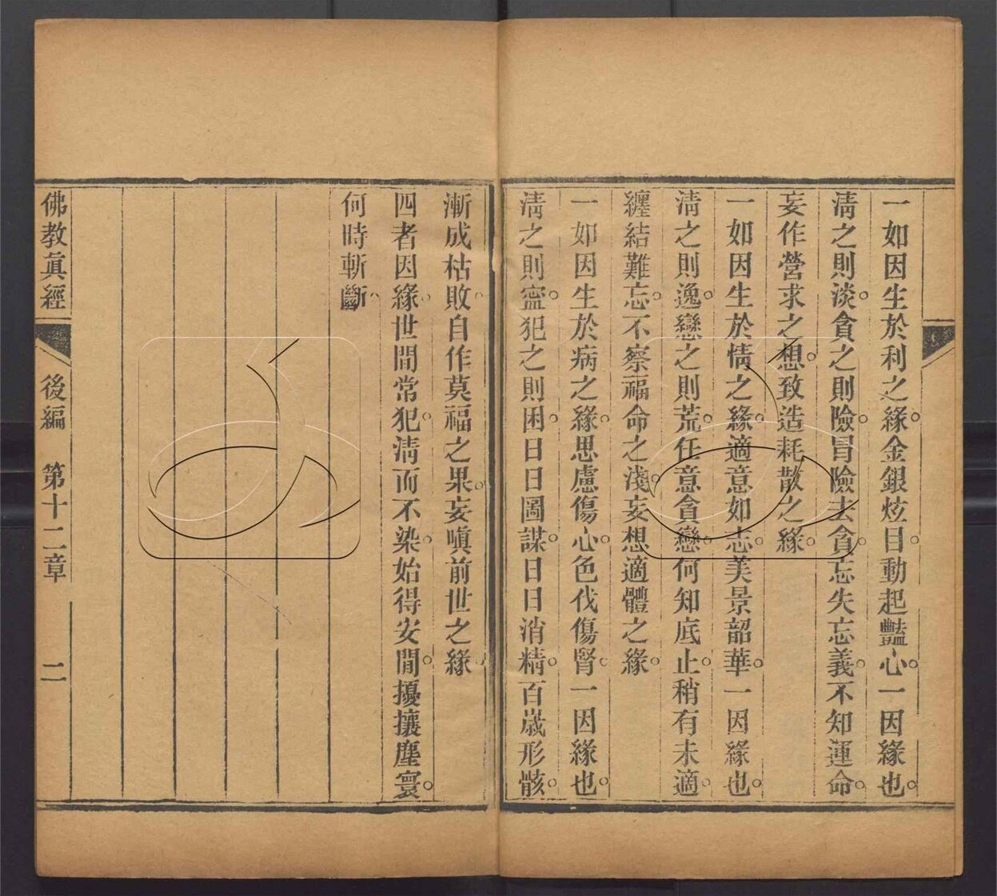 一如因生於利之緣。金銀炫目。動起豔心。一因緣也。
清之則淡。貪之則險。冒險去貪。忘失忘義。不知運命。
妄作營求之想。致造耗散之緣。
一如因生於情之緣。適意如志。美景韶華。一因緣也。
清之則逸。戀之則荒。任意貪戀。何知底止。稍有未適。
纏結難忘。不察福命之淺。妄想適體之緣。
一如因生於病之緣。思慮傷心。色伐傷腎。一因緣也。
清之則寍。犯之則困。日日圖謀。日日消精。百歲形骸。
漸成枯敗。自作莫福之果。妄嗔前世之緣。
四者因緣。世間常犯。清而不染。始得安閒。擾攘塵寰。
何時斬斷。
佛教真經 後編 第十二章 二